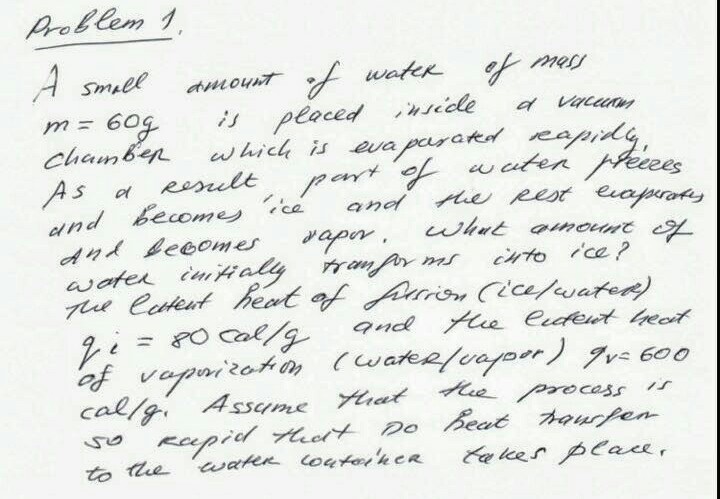 Problem 1.
A small amount of water of mass
m = 60g is placed inside a vacuum
chamber which is evaparated rapidly.
As a result, part of water freezes
and becomes ice and the rest evaporates
and becomes vapor. What amount of
water initially transforms into ice?
The latent heat of fussion (ice/water)
qi = 80 cal/g and the latent heat
of vaporization (water/vapour) qv = 600
cal/g. Assume that the process is
so rapid that no heat transfer
to the water container takes place.